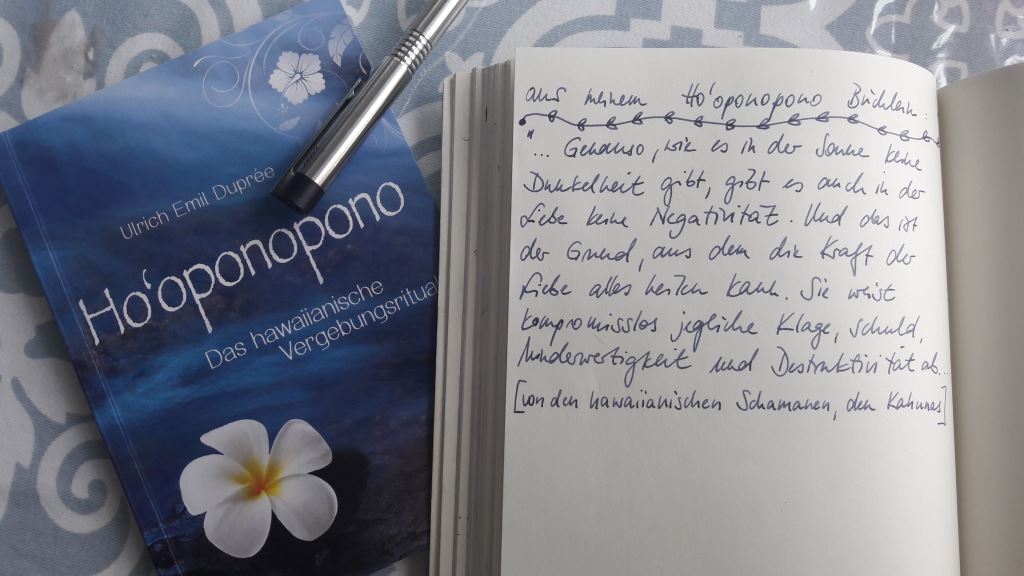 Ulrich Emil Duprée
Ho'oponopono
Das hawaiianische
Vergebungsritual
aus meinem Ho'oponopono Büchlein:
"... Genauso, wie es in der Sonne keine
Dunkelheit gibt, gibt es auch in der
Liebe keine Negativität. Und das ist
der Grund, aus dem die Kraft der
Liebe alles heilen kann. Sie weist
kompromisslos jegliche Klage, Schuld,
Minderwertigkeit und Destruktivität ab...
[von den hawaiianischen Schamanen, den Kahunas]